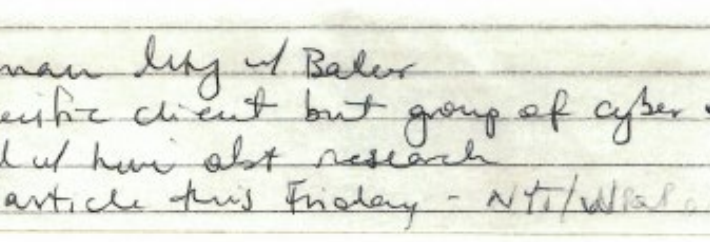 w/ Baker
client but group of cyber
w/ him abt research
article this Friday - NYT/WSPo